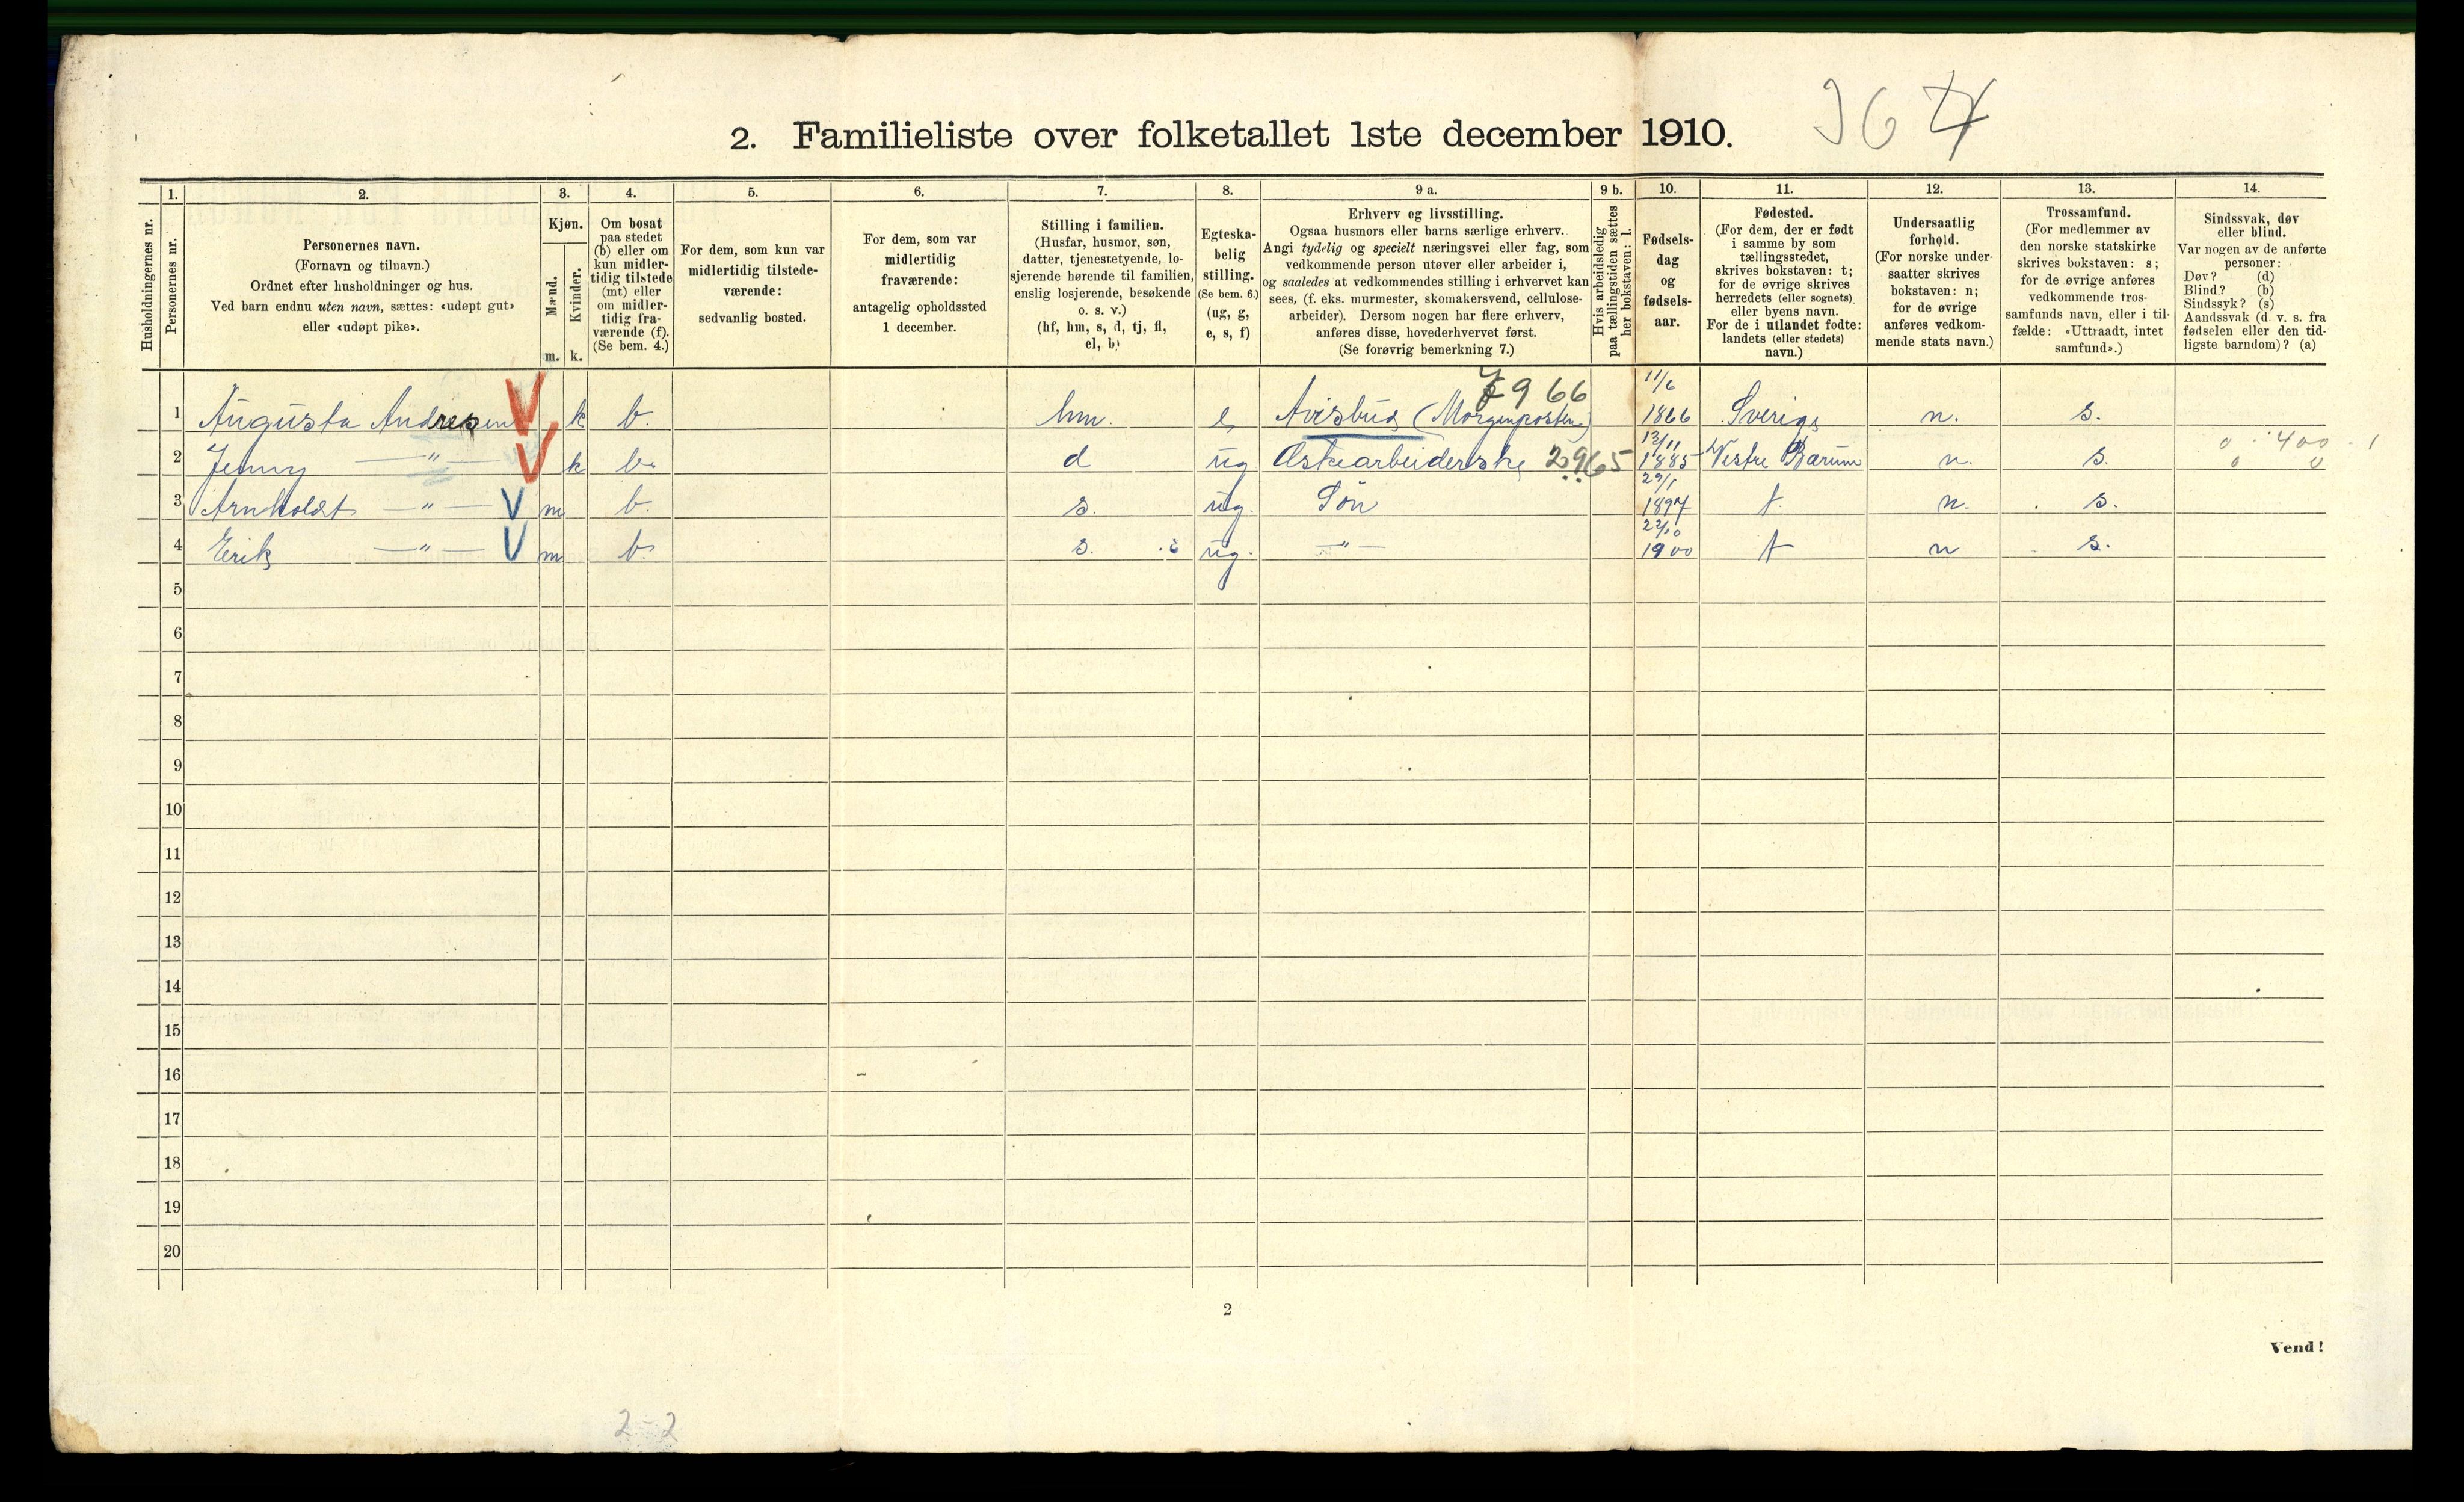 364
2. Familieliste over folketallet 1ste december 1910.
Husholdningernes nr.
1.
Personernes nr.
2.
Personernes navn.
(Fornavn og tilnavn.)
Ordnet efter husholdninger og hus.
Ved barn endnu uten navn, sættes: «udøpt gut»
eller «udøpt pike».
3.
Kjøn.
Mænd.
m.
Kvinder.
k.
4.
Om bosat
paa stedet
(b) eller om
kun midler-
tidig tilstede
(mt) eller
om midler-
tidig fra-
værende (f).
(Se bem. 4.)
5.
For dem, som kun var
midlertidig tilstede-
værende:
sedvanlig bosted.
6.
For dem, som var
midlertidig
fraværende:
antagelig opholdssted
1 december.
7.
Stilling i familien.
(Husfar, husmor, søn,
datter, tjenestetyende, lo-
sjerende hørende til familien,
enslig losjerende, besøkende
o. s. v.)
(hf, hm, s, d, tj, fl,
el, b)
8.
Egteska-
belig
stilling.
(Se bem. 6.)
(ug, g,
e, s, f)
9 a.
Erhverv og livsstilling.
Ogsaa husmors eller barns særlige erhverv.
Angi tydelig og specielt næringsvei eller fag, som
vedkommende person utøver eller arbeider i,
og saaledes at vedkommendes stilling i erhvervet kan
sees, (f. eks. murmester, skomakersvend, cellulose-
arbeider). Dersom nogen har flere erhverv,
anføres disse, hovederhvervet først.
(Se forøvrig bemerkning 7.)
9 b.
Hvis arbeidsledig
paa tællingstiden sættes
her bokstaven: l.
10.
Fødsels-
dag
og
fødsels-
aar.
11.
Fødested.
(For dem, der er født
i samme by som
tællingsstedet,
skrives bokstaven: t;
for de øvrige skrives
herredets (eller sognets)
eller byens navn.
For de i utlandet fødte:
landets (eller stedets)
navn.)
12.
Undersaatlig
forhold.
(For norske under-
saatter skrives
bokstaven: n;
for de øvrige
anføres vedkom-
mende stats navn.)
13.
Trossamfund.
(For medlemmer av
den norske statskirke
skrives bokstaven: s;
for de øvrige anføres
vedkommende tros-
samfunds navn, eller i til-
fælde: «Uttraadt, intet
samfund».)
14.
Sindssvak, døv
eller blind.
Var nogen av de anførte
personer:
Døv? (d)
Blind? (b)
Sindssyk? (s)
Aandssvak (d. v. s. fra
fødselen eller den tid-
ligste barndom)? (a)
1 Augusta Andresen V k b. hm. e Avisbud (Morgenposten) 966 11/6 1866 Sverige n. s.
2 Jenny —"— V k b. d ug Æskearbeiderske 2965 13/11 1885 Vestre Bærum n. s. 0 400 1
0 0
3 Arnholdt —"— V m b. s. ug. Søn 29/1 1897 t. n. s.
4 Erik —"— V m b. s. ug. —"— 22/10 1900 t n s.
5
6
7
8
9
10
11
12
13
14
15
16
17
18
19
20
2
Vend!
2-2